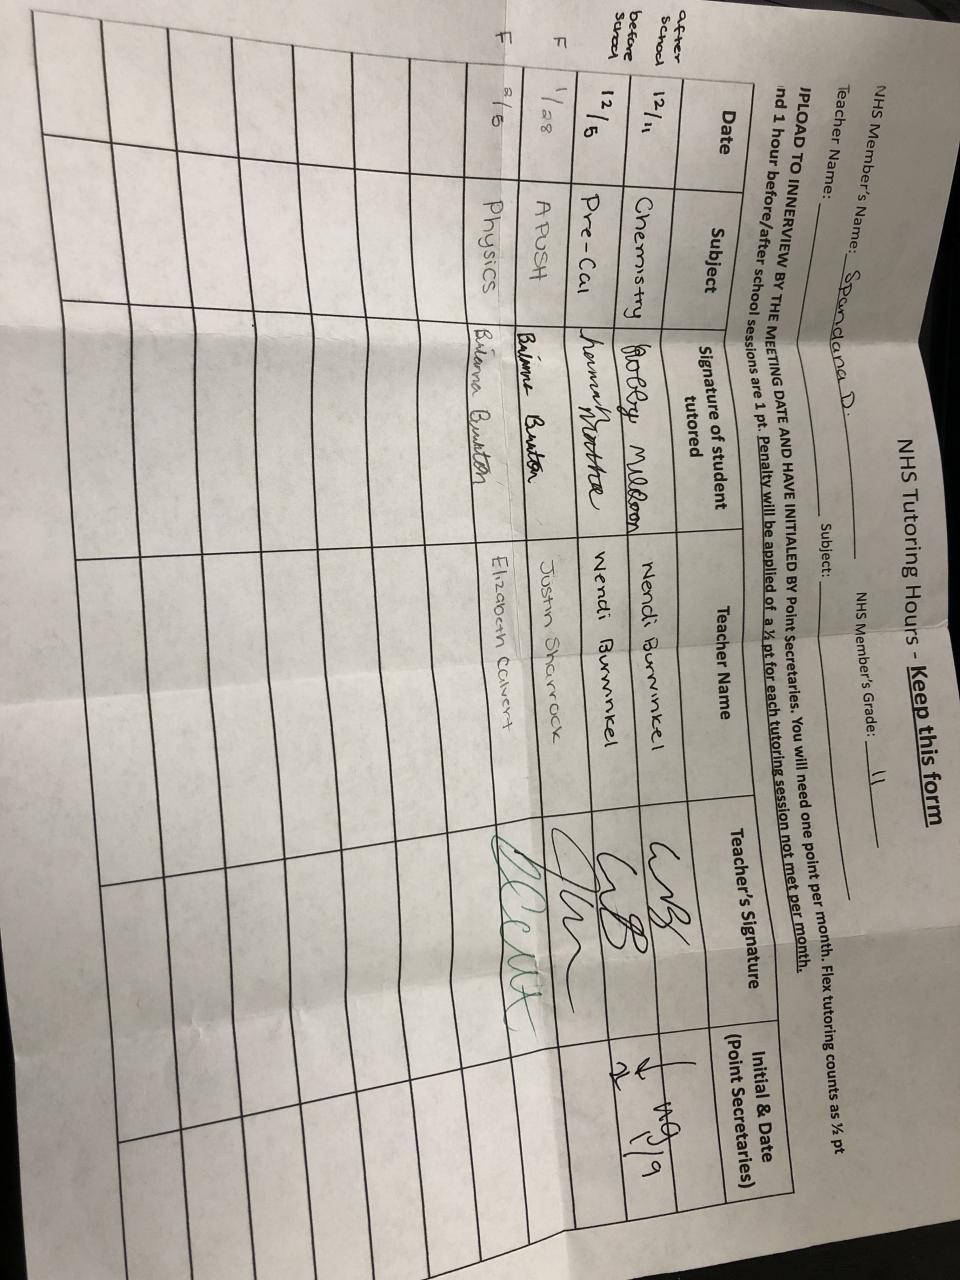 NHS Tutoring Hours - Keep this form
NHS Member's Name: Spandana D. NHS Member's Grade: 11
Teacher Name: Subject:
UPLOAD TO INNERVIEW BY THE MEETING DATE AND HAVE INITIALED BY Point Secretaries. You will need one point per month. Flex tutoring counts as ½ pt
nd 1 hour before/after school sessions are 1 pt. Penalty will be applied of a ½ pt for each tutoring session not met per month.
Date Subject Signature of student tutored Teacher Name Teacher's Signature Initial & Date (Point Secretaries)
after school 12/4 Chemistry Wendi Burwinkel WB
before school 12/5 Pre-Cal Wendi Burwinkel WB
F 1/28 APUSH Brianna Burton Justin Sharrock
F 2/5 Physics Brianna Burton Elizabeth Calvert